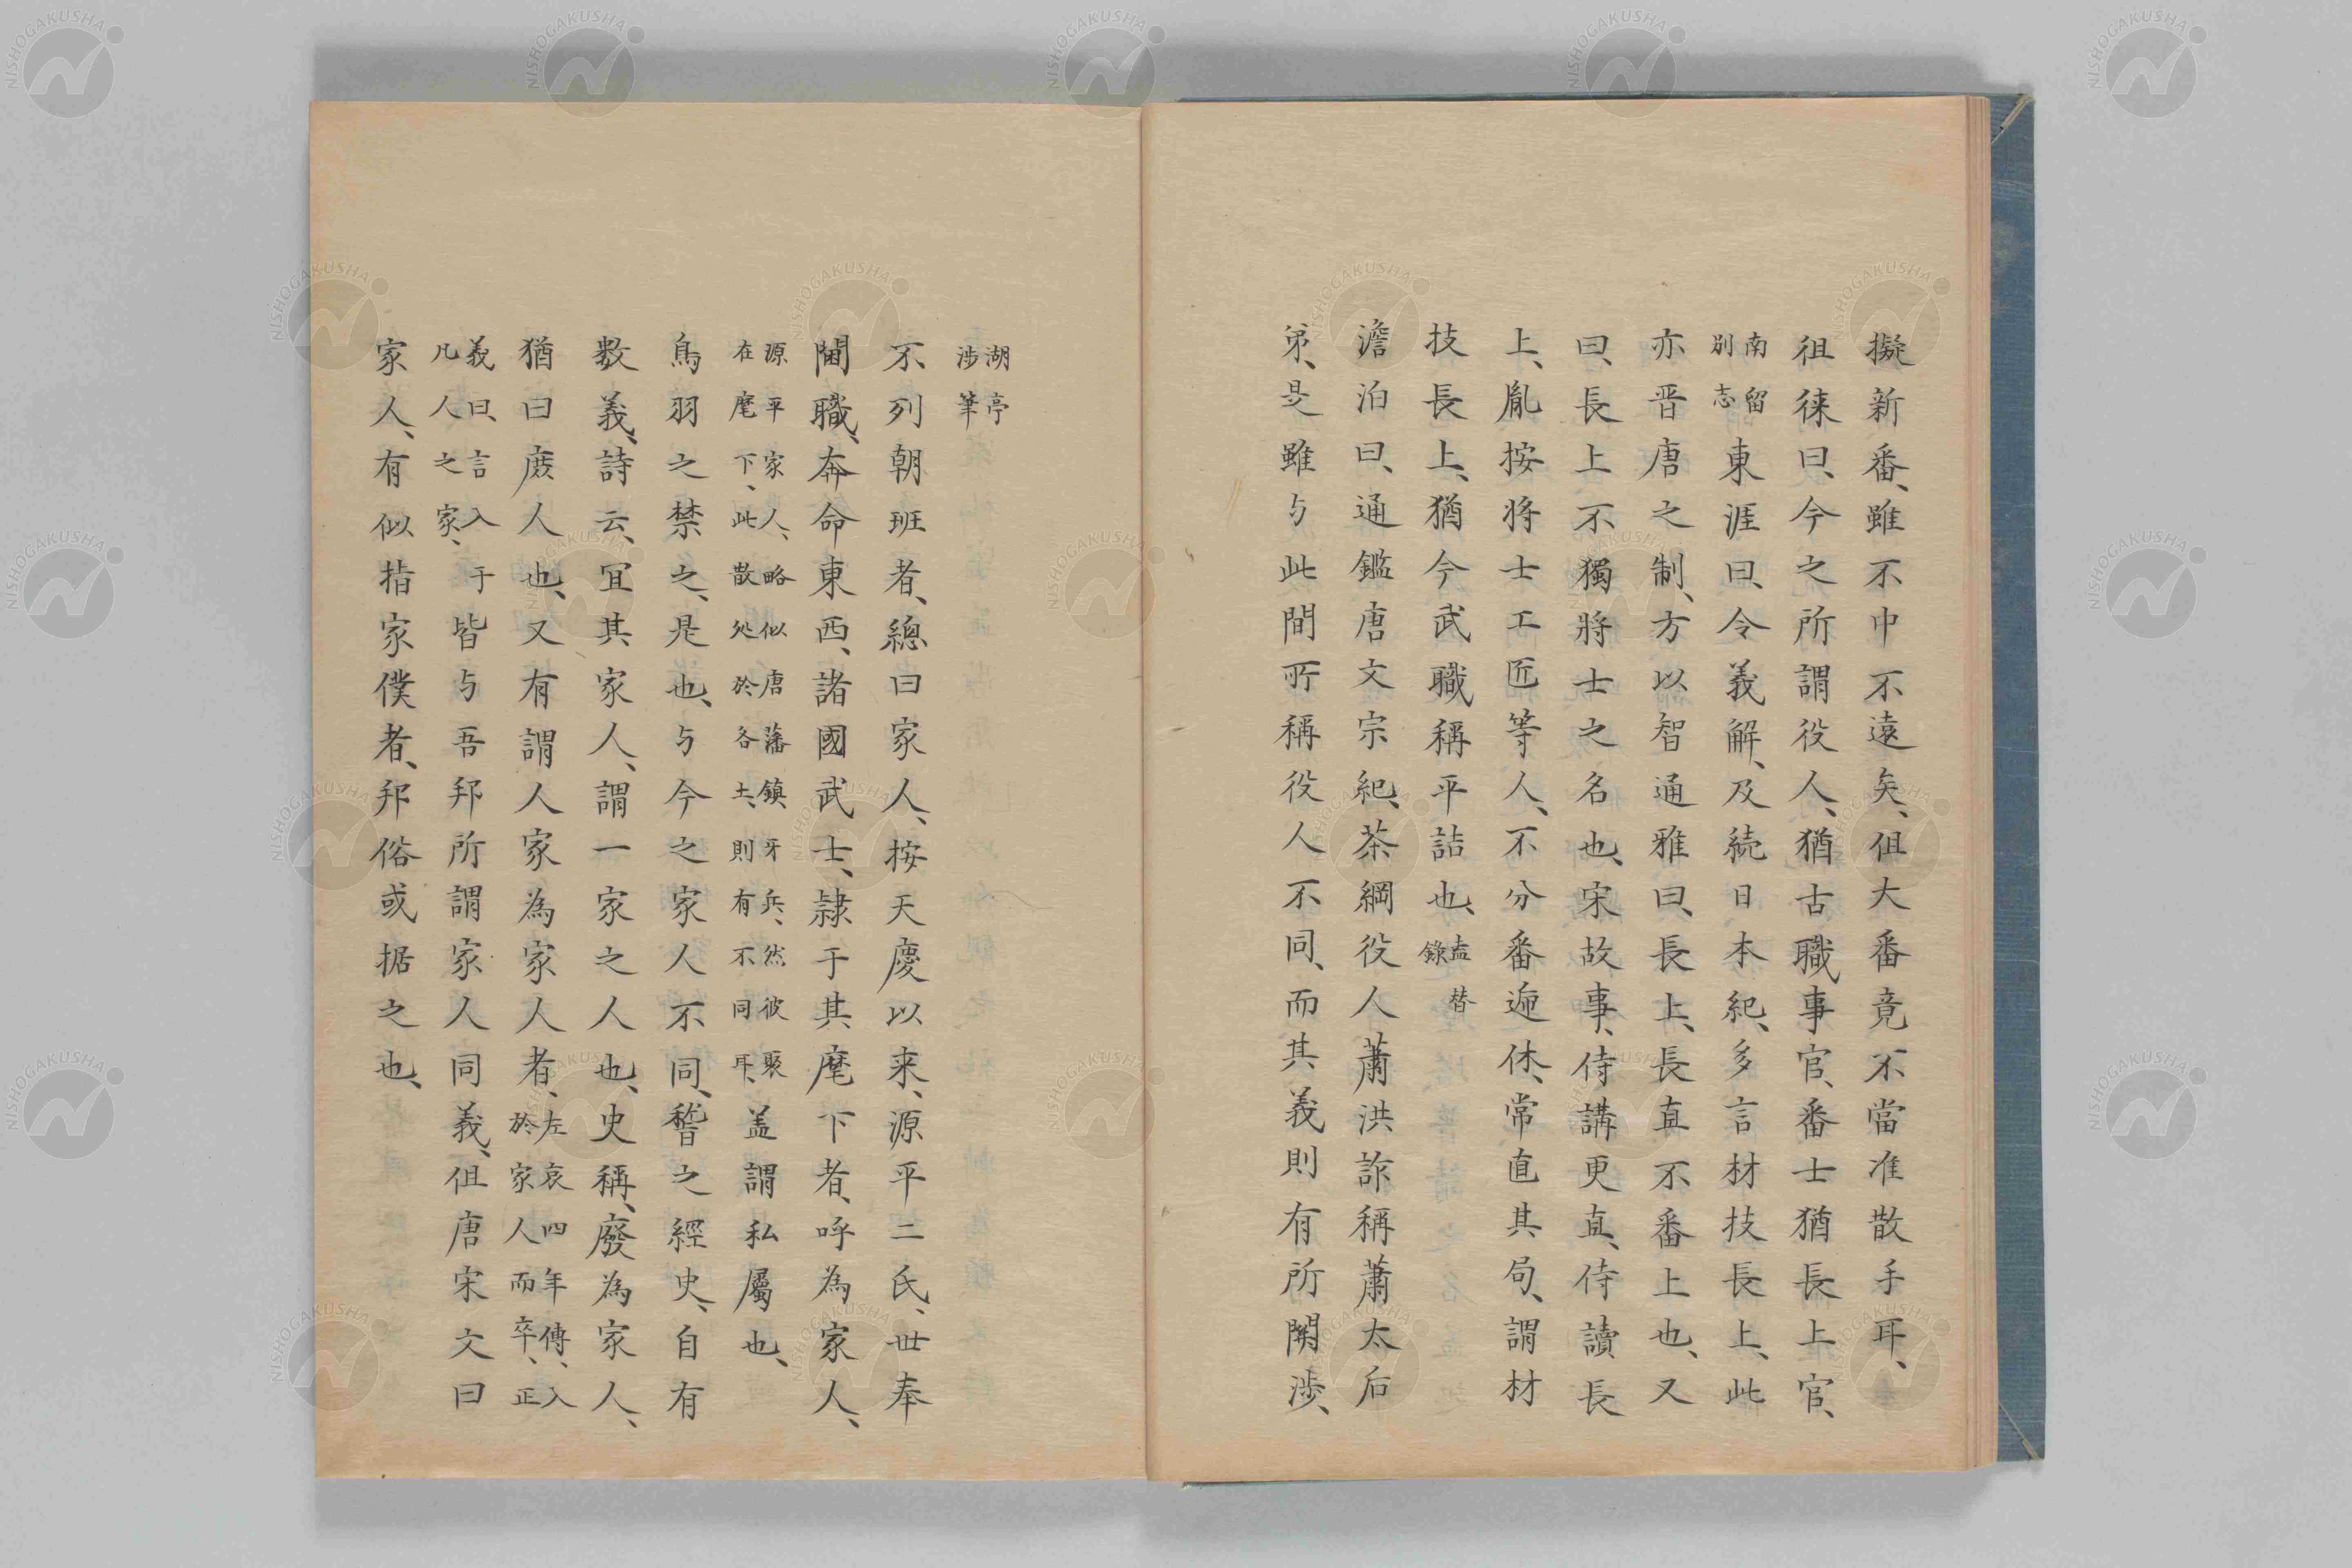 擬新番、雖不中不遠矣、但大番竟不當准散手耳、
徂徠曰、今之所謂役人、猶古職事官、番士猶長上官、
南留
別志
東涯曰、令義解、及続日本紀、多言材技長上、此
亦晋唐之制、方以智通雅曰、長上、長直不番上也、又
曰、長上不獨將士之名也、宋故事、侍講更直、侍讀長
上、胤按将士工匠等人、不分番迊休、常直其局、謂材
技長上、猶今武職稱平詰也、
盍簪
錄
澹泊曰、通鑑唐文宗紀、茶綱役人蕭洪詐稱蕭太后
弟、是雖与此間所稱役人不同、而其義則有所関渉、
湖亭
渉筆
不列朝班者、總曰家人、按天慶以来、源平二氏、世奉
閫職、奔命東西、諸國武士、隷于其麾下者、呼為家人、
源平家人、略似唐藩鎮牙兵、然彼聚
在麾下、此散処於各土、則有不同耳、
盖謂私屬也、
鳥羽之禁之、是也、与今之家人不同、稽之經史、自有
数義、詩云、宜其家人、謂一家之人也、史稱、廢為家人、
猶曰庻人也、又有謂人家為家人者、
左哀四年傳、入
於家人而卒、正
義曰、言入于
凡人之家、
皆与吾邦所謂家人同義、但唐宋文曰
家人、有似指家僕者、邦俗或据之也、
NISHOGAKUSHA